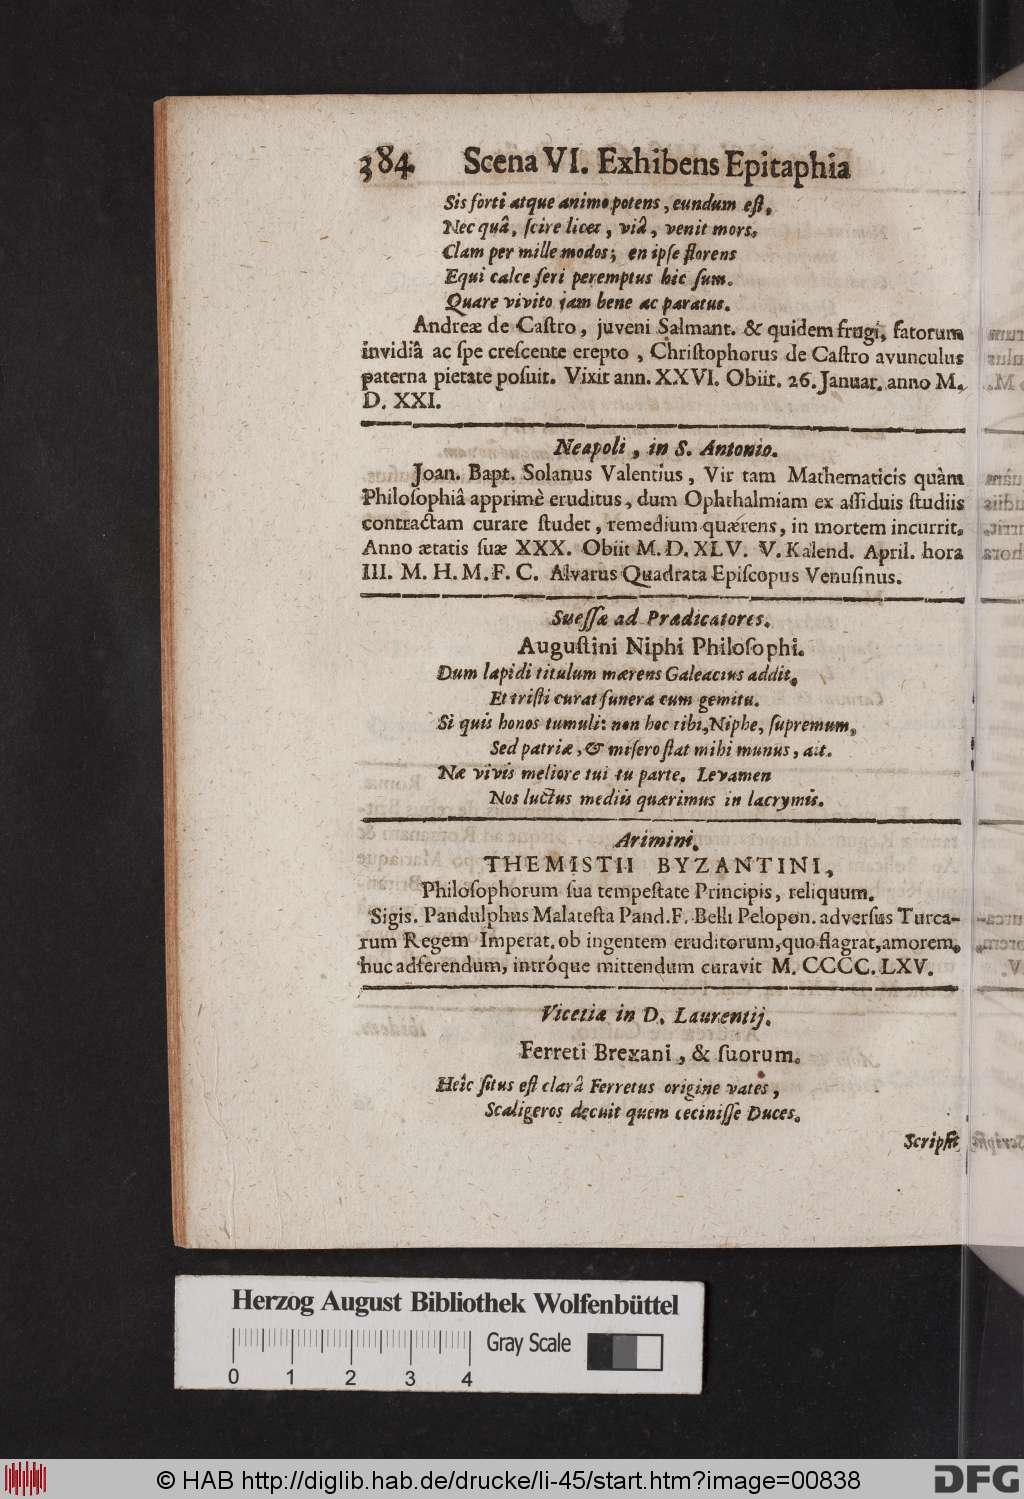 384. Scena VI. Exhibens Epitaphia
Sis forti atque animo potens, eundum est,
Nec quâ, ſcire licet, viâ, venit mors.
Clam per mille modos; en ipſe florens
Equi calce feri peremptus hic ſum.
Quare vivito jam bene ac paratus.
Andreæ de Caſtro, juveni Salmant. & quidem frugi, fatorum
invidiâ ac ſpe creſcente erepto, Chriſtophorus de Caſtro avunculus
paterna pietate poſuit. Vixit ann. XXVI. Obiit. 26. Januar. anno M.
D. XXI.
Neapoli, in S. Antonio.
Joan. Bapt. Solanus Valentius, Vir tam Mathematicis quàm
Philoſophiâ apprimè eruditus, dum Ophthalmiam ex aſſiduis ſtudiis
contractam curare ſtudet, remedium quærens, in mortem incurrit.
Anno ætatis ſuæ XXX. Obiit M. D. XLV. V. Kalend. April. hora
III. M. H. M. F. C. Alvarus Quadrata Epiſcopus Venuſinus.
Sueſſæ ad Prædicatores.
Auguſtini Niphi Philoſophi.
Dum lapidi titulum mærens Galeacius addit,
Et triſti curat funera cum gemitu.
Si quis honos tumuli: non hoc tibi, Niphe, ſupremum,
Sed patriæ, & miſero ſtat mihi munus, ait.
Næ vivis meliore tui tu parte. Levamen
Nos luctus mediis quærimus in lacrymis.
Arimini.
THEMISTII BYZANTINI,
Philoſophorum ſua tempeſtate Principis, reliquum.
Sigis. Pandulphus Malateſta Pand. F. Belli Pelopon. adverſus Turca-
rum Regem Imperat. ob ingentem eruditorum, quo flagrat, amorem,
huc adferendum, intróque mittendum curavit M. CCCC. LXV.
Vicetiæ in D. Laurentij.
Ferreti Brexani, & ſuorum.
Heîc ſitus eſt clarâ Ferretus origine vates,
Scaligeros decuit quem ceciniſſe Duces.
Scripſit
Herzog August Bibliothek Wolfenbüttel
Gray Scale
0 1 2 3 4
© HAB http://diglib.hab.de/drucke/li-45/start.htm?image=00838
DFG